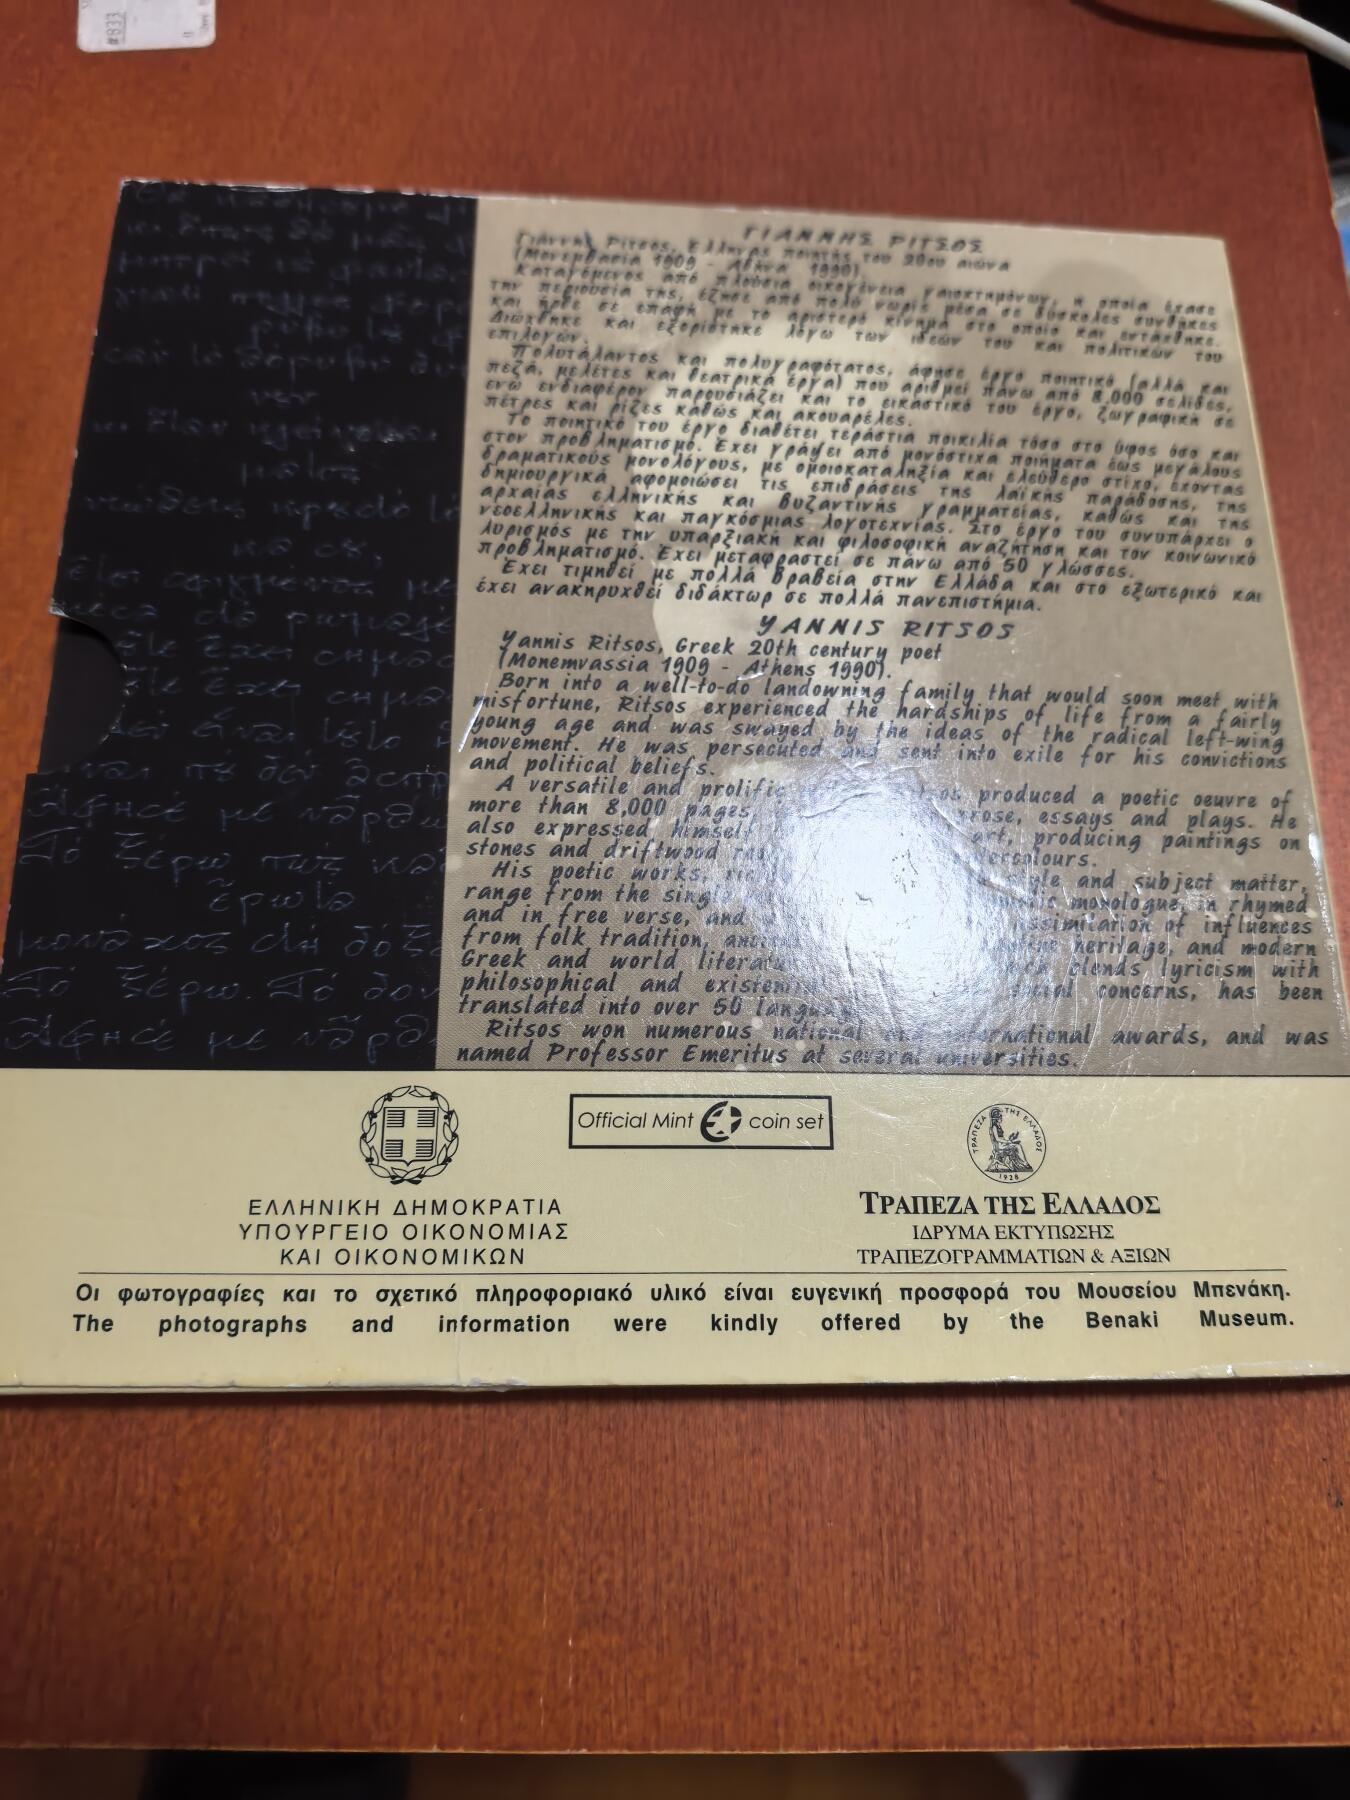 #833
ΓΙΑΝΝΗΣ ΡΙΤΣΟΣ
Γιάννης Ρίτσος, Έλληνας ποιητής του 20ου αιώνα
(Μονεμβασία 1909 - Αθήνα 1990).
Καταγόμενος από πλούσια οικογένεια γαιοκτημόνων, η οποία έχασε
την περιουσία της, έζησε από πολύ νωρίς μέσα σε δύσκολες συνθήκες
και ήρθε σε επαφή με το αριστερό κίνημα στο οποίο και εντάχθηκε.
Διώχθηκε και εξορίστηκε λόγω των ιδεών του και πολιτικών του
επιλογών.
Πολυτάλαντος και πολυγραφότατος, άφησε έργο ποιητικό (αλλά και
πεζά, μελέτες και θεατρικά έργα) που αριθμεί πάνω από 8.000 σελίδες,
ενώ ενδιαφέρον παρουσιάζει και το εικαστικό του έργο, ζωγραφική σε
πέτρες και ρίζες καθώς και ακουαρέλες.
Το ποιητικό του έργο διαθέτει τεράστια ποικιλία τόσο στο ύφος όσο και
στον προβληματισμό. Έχει γράψει από μονόστιχα ποιήματα έως μεγάλους
δραματικούς μονολόγους, με ομοιοκαταληξία και ελεύθερο στίχο, έχοντας
δημιουργικά αφομοιώσει τις επιδράσεις της λαϊκής παράδοσης, της
αρχαίας ελληνικής και βυζαντινής γραμματείας, καθώς και της
νεοελληνικής και παγκόσμιας λογοτεχνίας. Στο έργο του συνυπάρχει ο
λυρισμός με την υπαρξιακή και φιλοσοφική αναζήτηση και τον κοινωνικό
προβληματισμό. Έχει μεταφραστεί σε πάνω από 50 γλώσσες.
Έχει τιμηθεί με πολλά βραβεία στην Ελλάδα και στο εξωτερικό και
έχει ανακηρυχθεί διδάκτωρ σε πολλά πανεπιστήμια.
YANNIS RITSOS
Yannis Ritsos, Greek 20th century poet
(Monemvassia 1909 - Athens 1990).
Born into a well-to-do landowning family that would soon meet with
misfortune, Ritsos experienced the hardships of life from a fairly
young age and was swayed by the ideas of the radical left-wing
movement. He was persecuted and sent into exile for his convictions
and political beliefs.
A versatile and prolific produced a poetic oeuvre of
more than 8,000 pages, prose, essays and plays. He
also expressed himself art, producing paintings on
stones and driftwood watercolours.
His poetic works, style and subject matter,
range from the single monologue, in rhymed
and in free verse, and assimilation of influences
from folk tradition, heritage, and modern
Greek and world literature blends lyricism with
philosophical and existential social concerns, has been
translated into over 50 languages.
Ritsos won numerous national and international awards, and was
named Professor Emeritus at several universities.
Αφησέ με νάρθω
Τό ξέρω πως
έρωτα
Τό ξέρω. Τό
Αφησέ με νάρθω
Official Mint coin set
ΤΡΑΠΕΖΑ ΤΗΣ ΕΛΛΑΔΟΣ
1928
ΕΛΛΗΝΙΚΗ ΔΗΜΟΚΡΑΤΙΑ
ΥΠΟΥΡΓΕΙΟ ΟΙΚΟΝΟΜΙΑΣ
ΚΑΙ ΟΙΚΟΝΟΜΙΚΩΝ
ΤΡΑΠΕΖΑ ΤΗΣ ΕΛΛΑΔΟΣ
ΙΔΡΥΜΑ ΕΚΤΥΠΩΣΗΣ
ΤΡΑΠΕΖΟΓΡΑΜΜΑΤΙΩΝ & ΑΞΙΩΝ
Οι φωτογραφίες και το σχετικό πληροφοριακό υλικό είναι ευγενική προσφορά του Μουσείου Μπενάκη.
The photographs and information were kindly offered by the Benaki Museum.